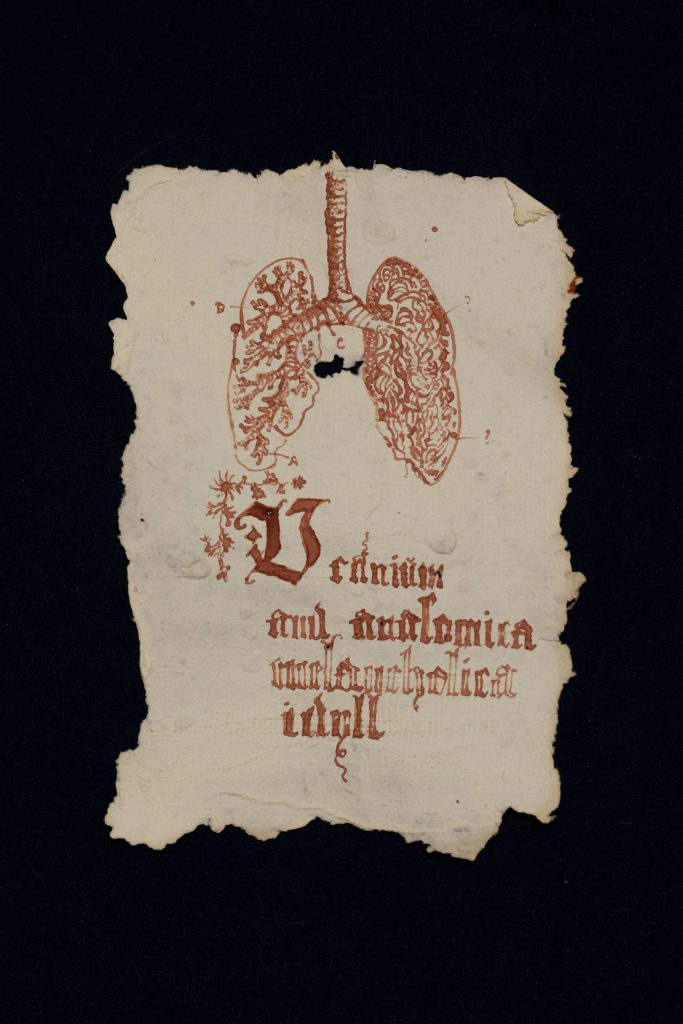 D
C
Uranium
and anatomica
melancholica
idyll